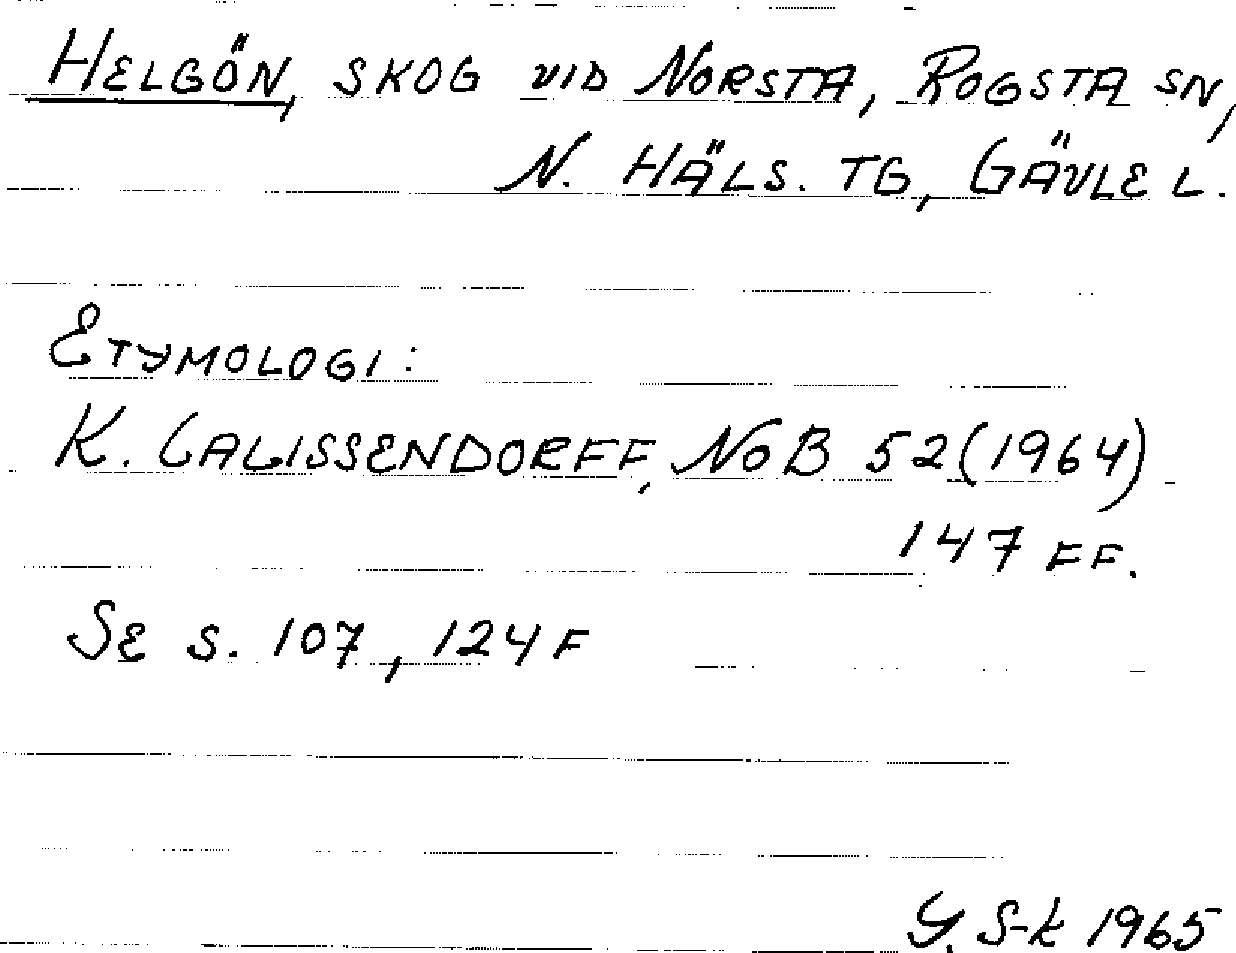 HELGÖN, SKOG VID NORSTA, ROGSTA SN,
N. HÄLS. TG, GÄVLE L.
ETYMOLOGI:
K. CALISSENDORFF, NOB 52 (1964)
147 FF.
SE S. 107, 124 F
Y. S-K 1965